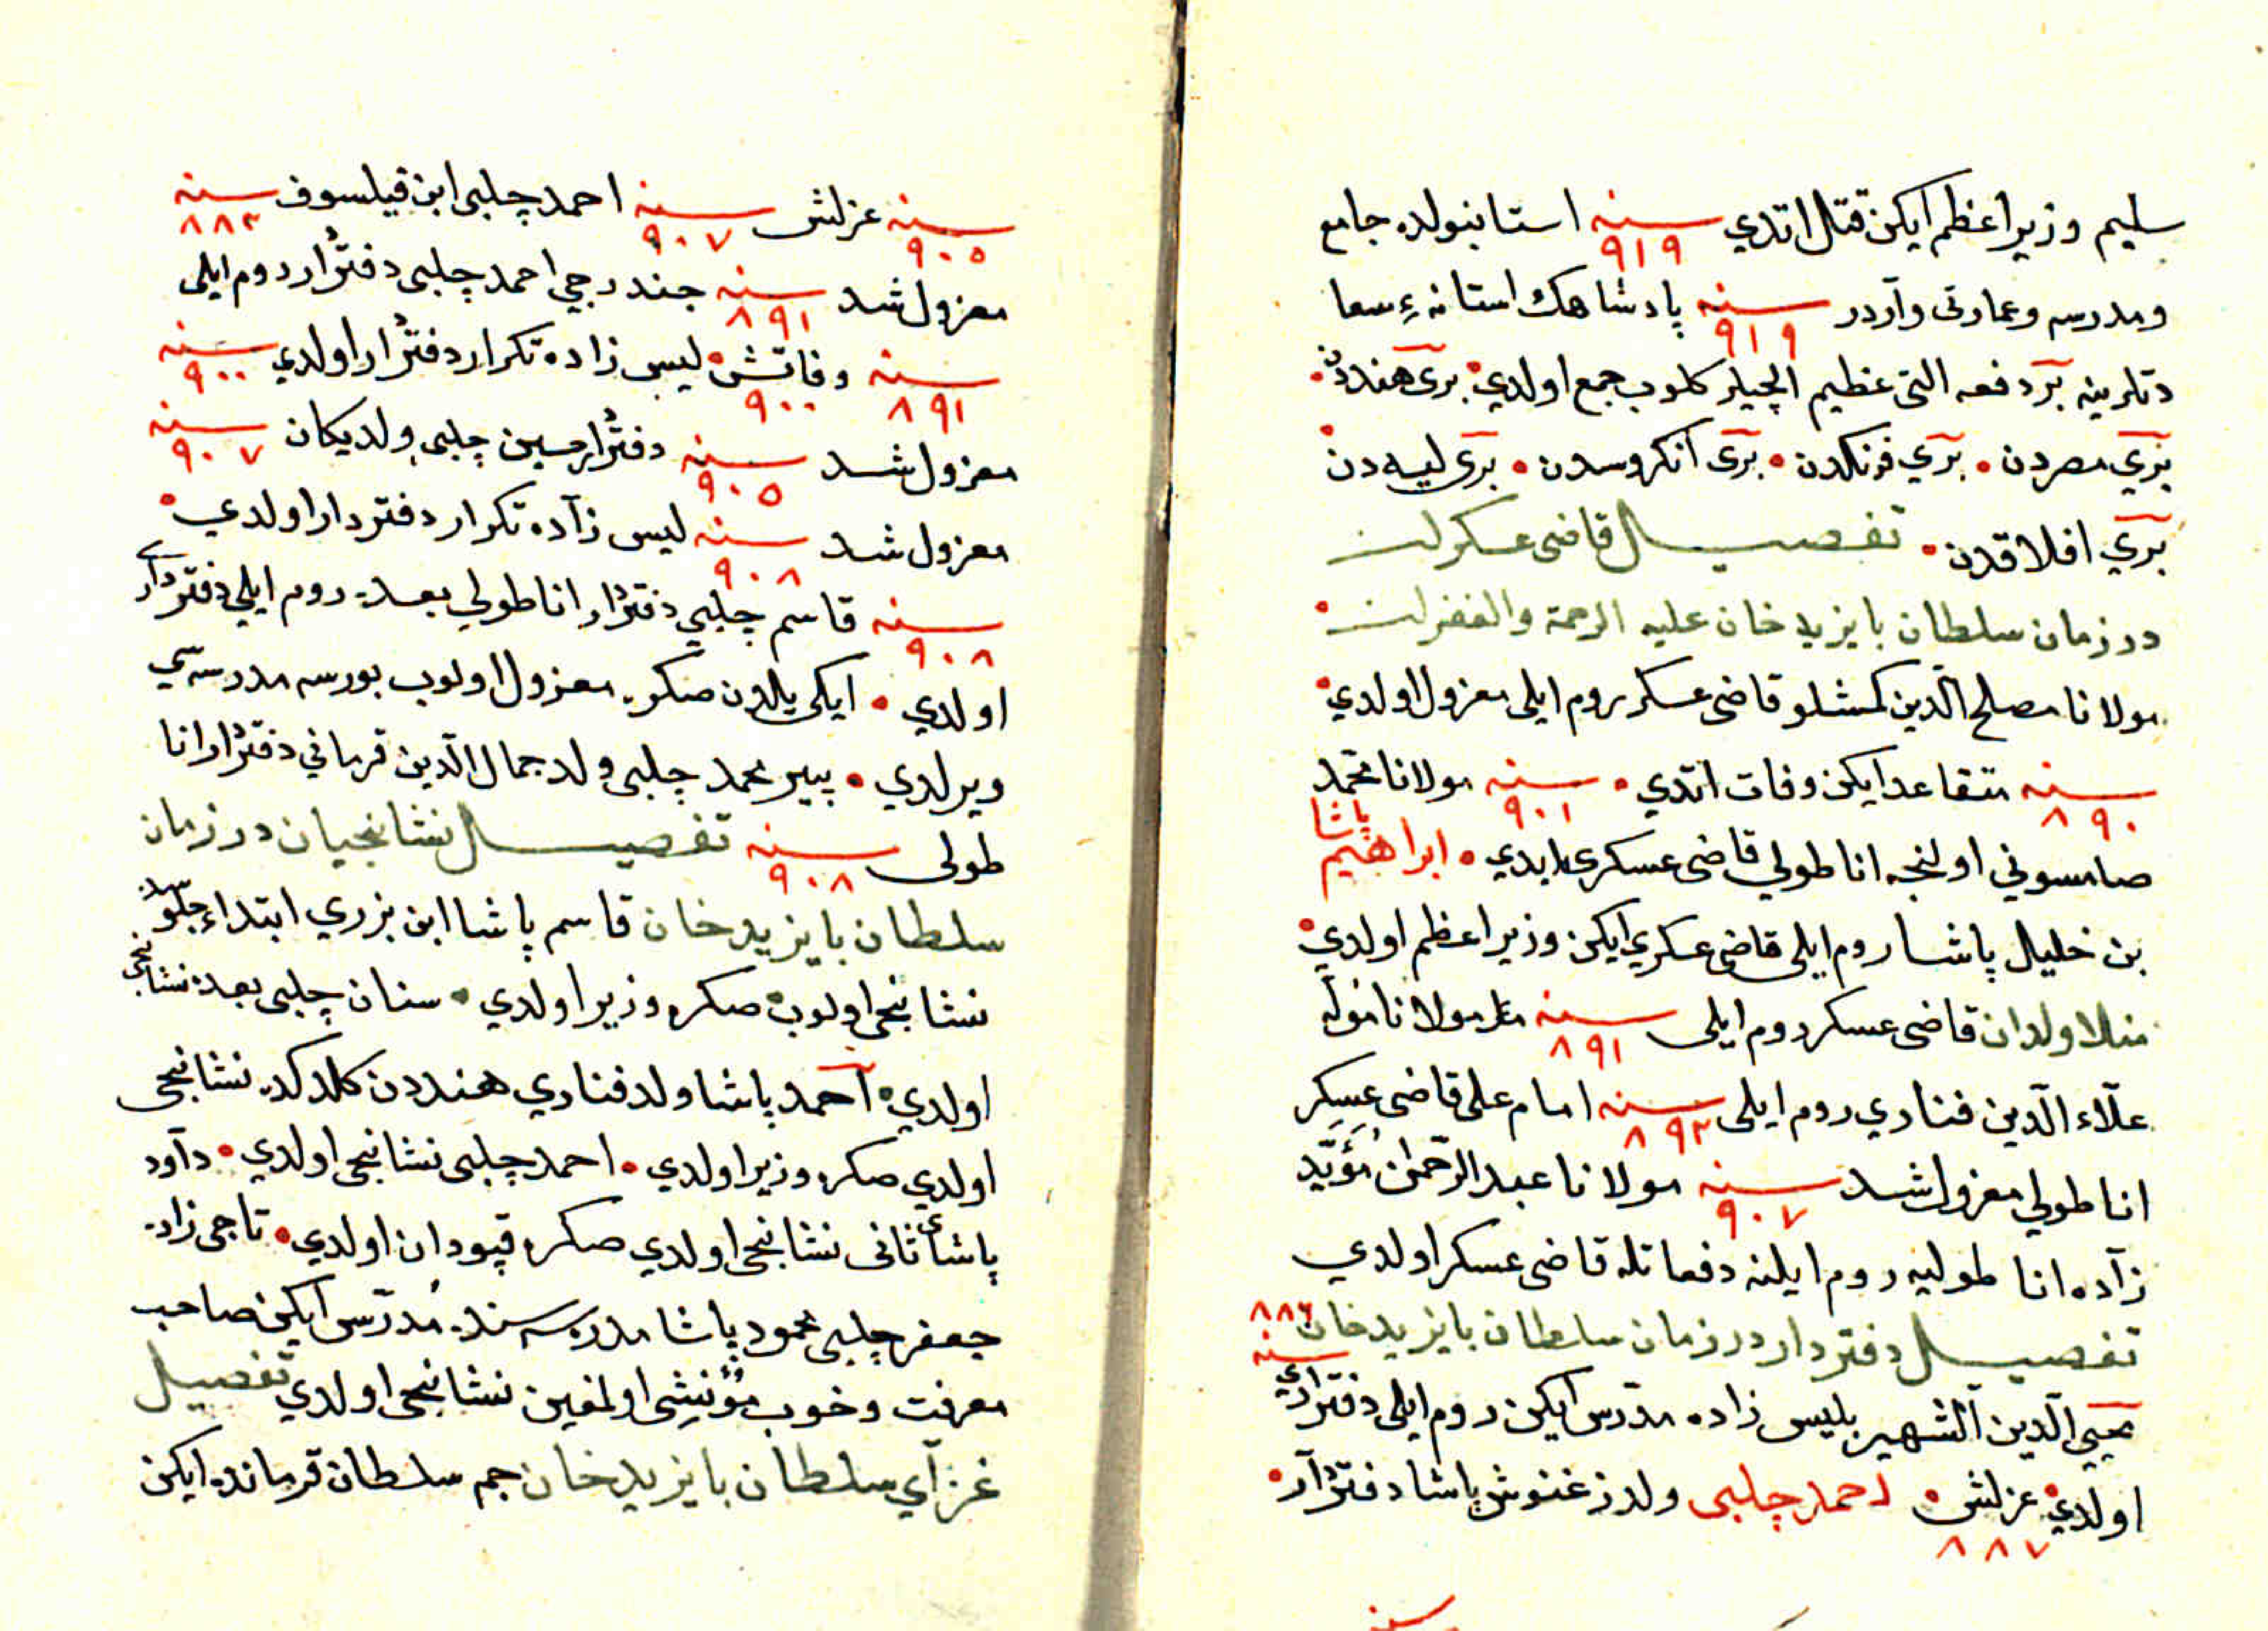 سليم وزير اعظم ايكن قتل اتدي سنه ٩١٩ استانبولده جامع
ومدرسه وعمارتى واردر سنه ٩١٩ پادشاهك استانهٔ سعا
دتلرينه بر دفعه التى عظيم الچيلر كلوب جمع اولدي برى هنددن
بري مصردن بري فرنكدن برى انكروسدن برى ليه دن
بري افلاقدن تفصيل قاضى عسكرلر
در زمان سلطان بايزيد خان عليه الرحمة والغفران
مولانا مصلح الدين كمشلو قاضى عسكر روم ايلى معزول اولدي
سنه ٨٩٠ متقاعد ايكن وفات اتدي سنه ٩٠١ مولانا محمد
صامسوني اولنجه اناطولي قاضى عسكرى ايدي ابراهيم پاشا
بن خليل پاشا روم ايلى قاضى عسكري ايكن وزير اعظم اولدي
منلا ولدان قاضى عسكر روم ايلى سنه ٨٩١ مولانا
علاء الدين فناري روم ايلى سنه ٨٩٢ امام على قاضى عسكر
اناطولي معزول شد سنه ٩٠٧ مولانا عبد الرحمن مؤيد
زاده اناطوليه روم ايلنه دفعاتله قاضى عسكر اولدي
تفصيل دفتردار در زمان سلطان بايزيد خان سنه ٨٨٦
محيي الدين الشهير بليس زاده مدرس ايكن روم ايلى دفترداري
اولدي عزلش ٨٨٧ احمد چلبى ولد زغنوش پاشا دفتردار
سنه ٩٠٥ عزلش سنه ٩٠٧ احمد چلبى ابن فيلسوف سنه ٨٨٢
معزول شد سنه ٨٩١ جندرجي احمد چلبى دفتردار روم ايلى
سنه ٨٩١ وفاتش ٩٠٠ ليس زاده تكرار دفتردار اولدي سنه ٩٠٠
معزول شد سنه ٩٠٥ دفتردار حسين چلبى ولد يكان سنه ٩٠٧
معزول شد سنه ٩٠٨ ليس زاده تكرار دفتردار اولدي
سنه ٩٠٨ قاسم چلبي دفتردار اناطولي بعده روم ايلي دفترداري
اولدي ايكى يلدن صكره معزول اولوب بورسه مدرسه سي
ويرلدي پير محمد چلبى ولد جمال الدين قرماني دفتردار انا
طولى سنه ٩٠٨ تفصيل نشانجيان در زمان
سلطان بايزيد خان قاسم پاشا ابن بزري ابتداء جلوسده
نشانجى اولوب صكره وزير اولدي سنان چلبى بعده نشانجى
اولدي احمد پاشا ولد فناري هنددن كلدكده نشانجى
اولدي صكره وزير اولدي احمد چلبى نشانجى اولدي داود
پاشاى ثانى نشانجى اولدي صكره قپودان اولدي تاجى زاده
جعفر چلبى محمود پاشا مدرسه سنده مدرس ايكن صاحب
معرفت وخوب مؤنشى اولمغين نشانجى اولدي تفصيل
غزاي سلطان بايزيد خان جم سلطان قرمانده ايكن
سنه